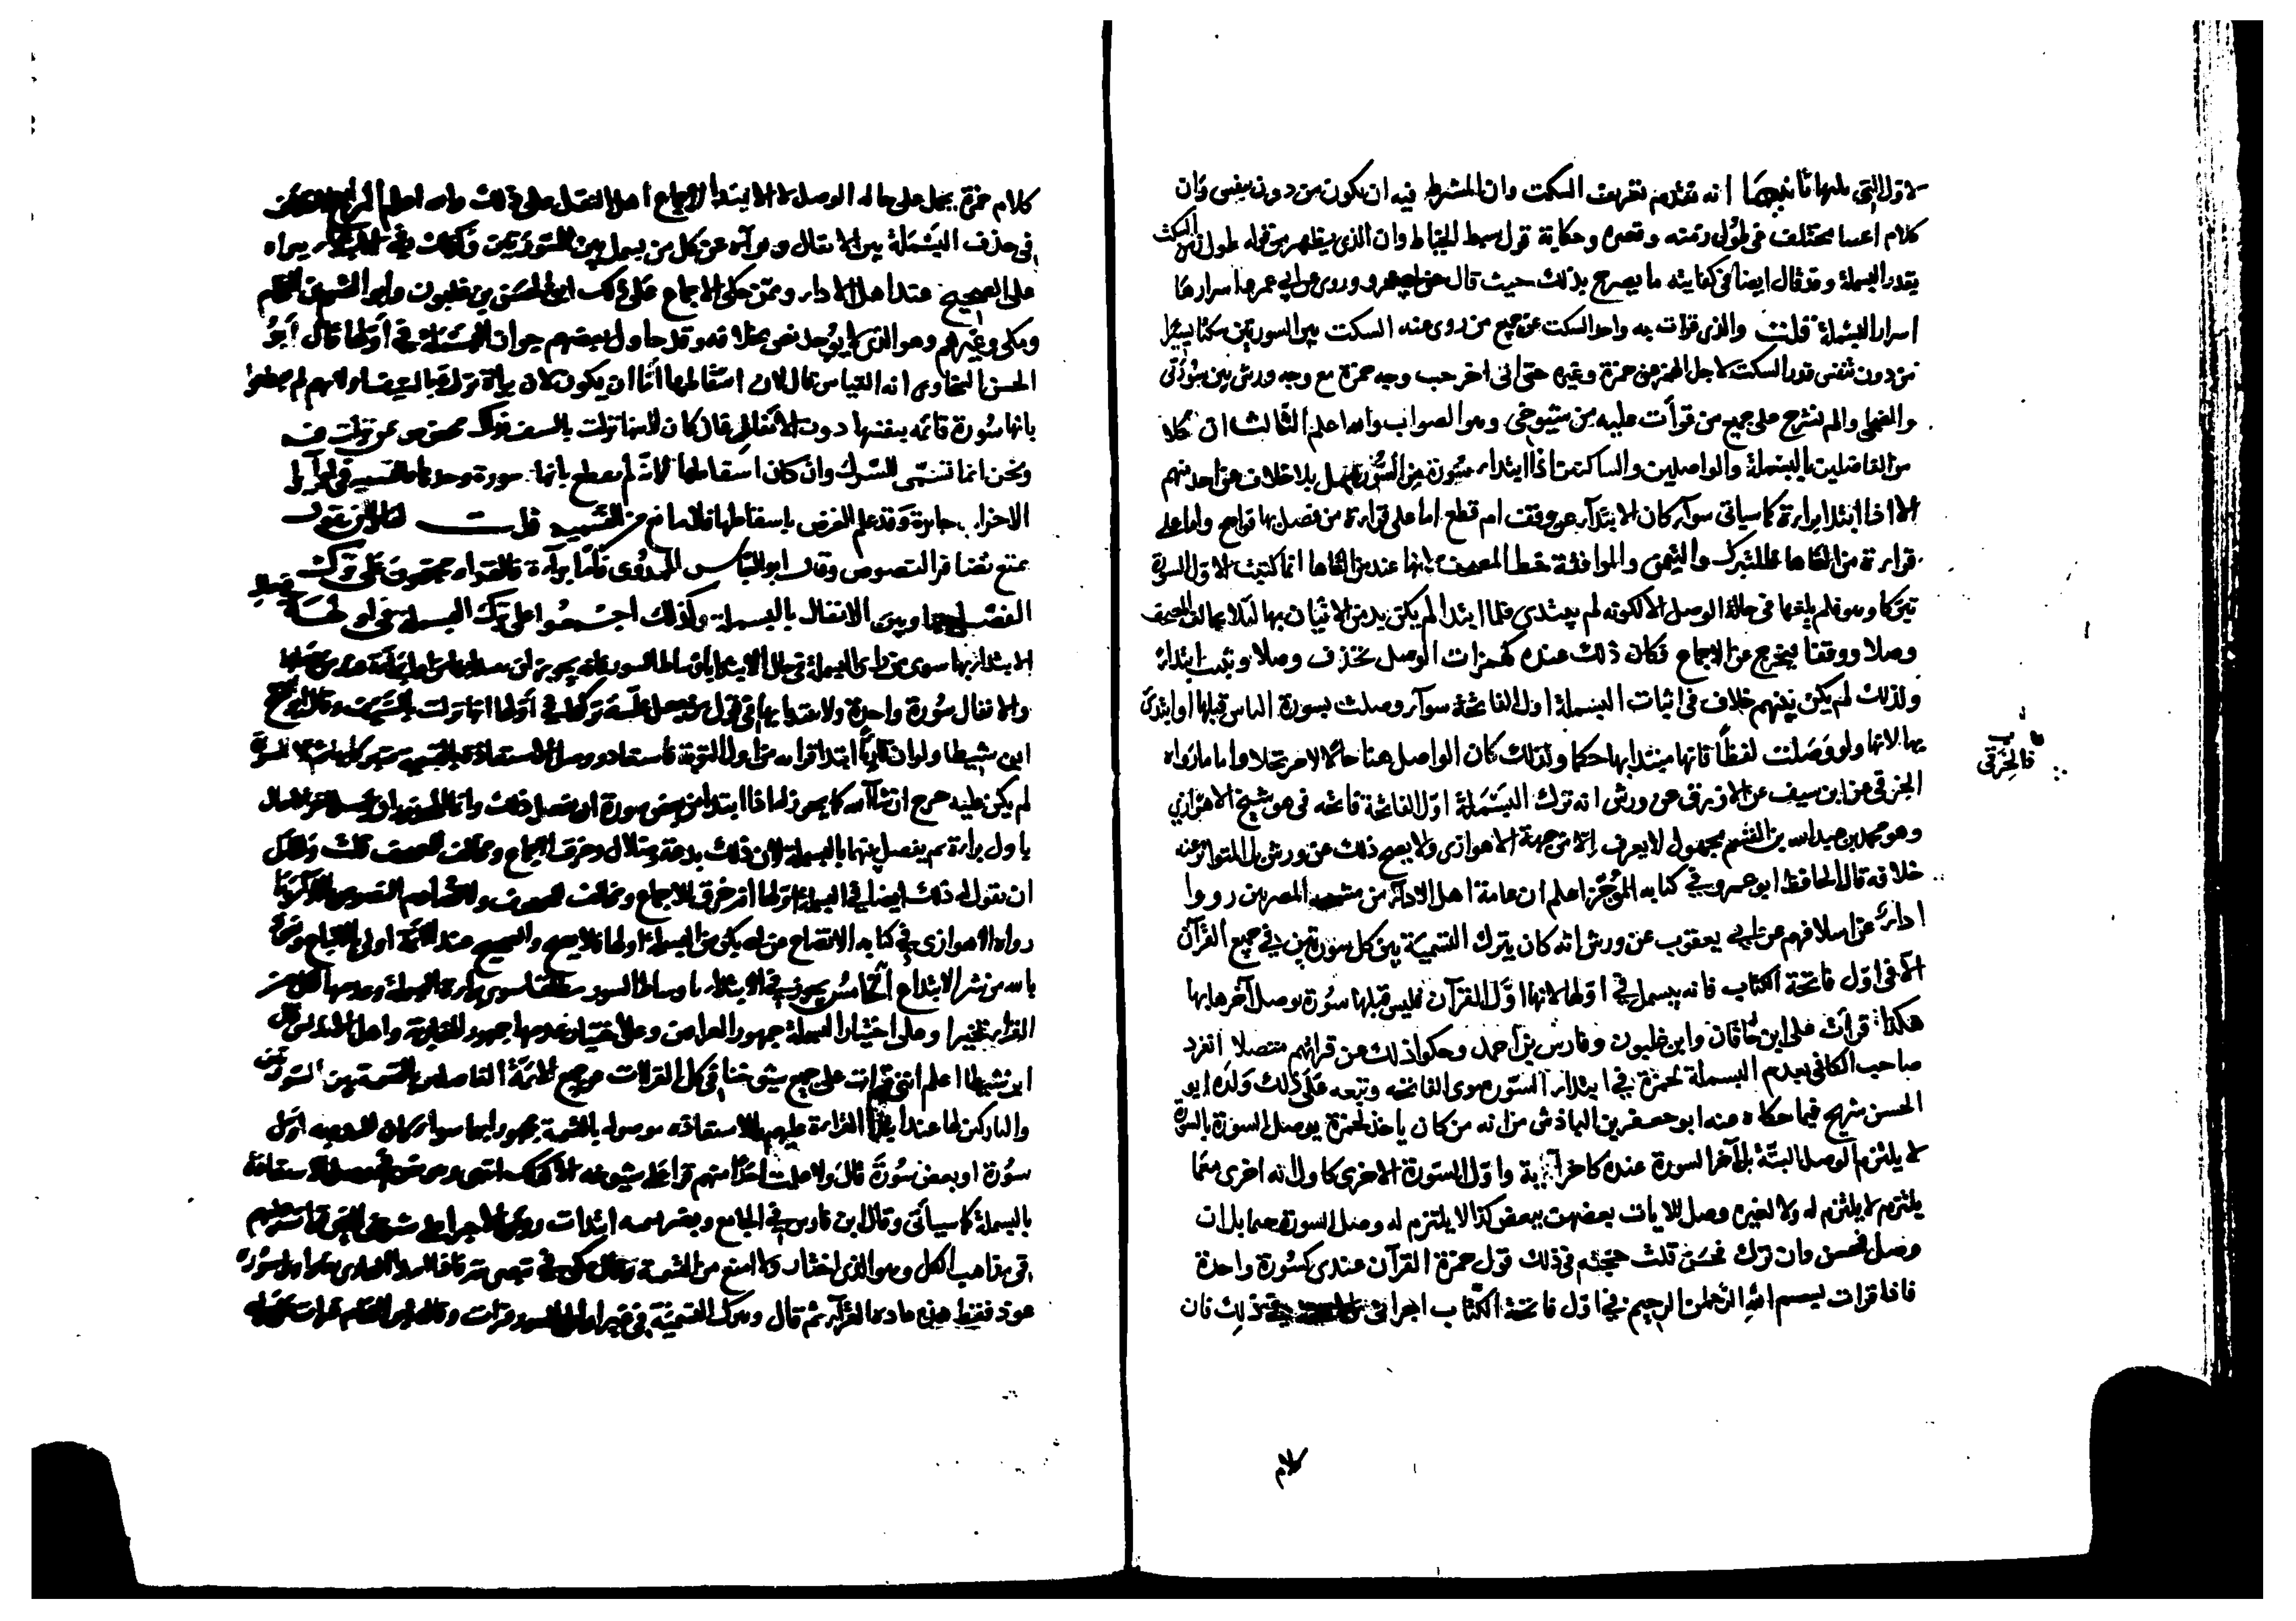 لاول التي يليها ثانيها انه تقدم تعريف السكت وان المشترط فيه ان يكون من دون تنفس وان
كلام ائمتنا مختلف في طول زمنه وقصره وحكاية قول سبط الخياط وان الذي يظهر من قوله طول زمن السكت
بقدر البسملة وقد قال ايضا في كفايته ما يصرح بذلك حيث قال عن ابي عمرو وروي عن ابي عمرو اسرارها
اسرار البسملة قلت والذي قرات به واخذ السكت عن جميع من روى عنه السكت بين السورتين سكتا يسيرا
من دون تنفس قدر السكت لاجل الهمز عن حمزة وغيره حتى اني اخرجت وجه حمزة مع وجه ورش بين سورتي
والضحى والم نشرح على جميع من قرأت عليه من شيوخي وهو الصواب والله اعلم الثالث ان كلا
من الفاصلين بالبسملة والواصلين والساكتين اذا ابتدا سورة من السور بسمل بلا خلاف عن احد منهم
الا اذا ابتدا براءة كما سياتي سوآء كان الابتدآء عن وقف ام قطع اما على قراءة من فصل بها فواضح واما على
قراءة من القاها فللتبرك والتيمن والموافقة خط المصحف لانها عند من القاها انما كتبت لاول السورة
تبركا وهو فلم يلغها في حالة الوصل الا لكونه لم يبتدي فلما ابتدا لم يكن بد من الاتيان بها لئلا يخالف المصحف
وصلا ووقفا فيخرج عن الاجماع فكان ذلك عنده كهمزات الوصل تحذف وصلا وتثبت ابتداء
ولذلك لم يكن بينهم خلاف في اثبات البسملة اول الفاتحة سوآء وصلت بسورة الناس قبلها او ابتدئ
بها لانها ولو وصلت لفظًا فانها مبتدا بها حكما ولذلك كان الواصل هنا حالا مرتحلا واما ما رواه
فالخرقي
الخرقي عن ابن سيف عن الازرق عن ورش انه ترك البسملة اول الفاتحة فالخرقي هو شيخ الاهوازي
وهو محمد بن عبد الله بن القسم مجهول لا يعرف الا من جهة الاهوازي ولا يصح ذلك عن ورش بل المتواتر عنه
خلافه قال الحافظ ابو عمرو في كتابه الموجز اعلم ان عامة اهل الاداء من مشيخة المصريين رووا
اداءً عن اسلافهم عن ابي يعقوب عن ورش انه كان يترك التسمية بين كل سورتين في جميع القرآن
الا في اول فاتحة الكتاب فانه يبسمل في اولها لانها اول القرآن فليس قبلها سورة يوصل آخرها بها
هكذا قرأت على ابن خاقان وابن غلبون وفارس بن احمد وحكوا ذلك عن قرائتهم متصلا انفرد
صاحب الكافي بعدم البسملة لحمزة في ابتداء السور سوى الفاتحة وتبعه على ذلك ولده ابو
الحسن شريح فيما حكاه عنه ابو جعفر بن الباذش من انه من كان ياخذ لحمزة بوصل السورة بالسورة
لا يلتزم الوصل البتة بل آخر السورة عنده كاخر آية واول السورة الاخرى كاول اية اخرى فكما
يلتزم لا يلتزم له ولا لغيره وصل الايات بعضهن ببعض كذا لا يلتزم له وصل السورة حتما بل ان
وصل فحسن وان ترك فحسن قلت حجته في ذلك قول حمزة القرآن عندي كسورة واحدة
فاذا قرات بسم الله الرحمن الرحيم في اول فاتحة الكتاب اجزاني في ذلك فان
كلام
كلام حمزة يحمل على حالة الوصل لا الابتدا لاجماع اهل النقل على ذلك والله اعلم الرابع
في حذف البسملة بين الانفال وبرآة عن كل من بسمل بين السورتين وكذلك في الابتدا ببراءة
على الصحيح عند اهل الاداء وممن حكى الاجماع على ذلك ابو الحسن بن غلبون وابن القسم بن الفحام
ومكي وغيرهم وهو الذي لا يوجد نص بخلافه وقد حاول بعضهم جواز البسملة في اولها قال ابو
الحسن السخاوي انه القياس قال لان اسقاطها اما ان يكون لان براءة نزلت بالسيف او لانهم لم يقطعوا
بانها سورة قائمة بنفسها دون الانفال فان كان لانها نزلت بالسيف فذاك مخصوص بمن نزلت فيه
ونحن انما نسمي للتبرك وان كان اسقاطها لانه لم يقطع بانها سورة وحدها فالتسمية في اوايل
الاجزاء جايزة وقد علم الغرض باسقاطها فلا مانع من التسمية قلت لقائل ان يقول
يمنع بظاهر النصوص وقال ابو العباس المهدوي فاما برآءة فالقراء مجتمعون على ترك
الفصل بينها وبين الانفال بالبسملة وكذلك اجمعوا على ترك البسملة في اولها حال
الابتداء بها سوى من راى البسملة في حال الابتدا باوساط السور فانه يجوز ان يبتدا بها من اول براءة عند من جعلها
والانفال سورة واحدة ولا يبتدا بها في قول من جعل علة تركها في اولها انها نزلت بالسيف وقال ابو الفتح
ابن شيطا ولو ان قارئا ابتدا قراءته من اول التوبة فاستعاذ ووصل الاستعاذة بالتسمية متبركا بها ثم تلا السورة
لم يكن عليه حرج ان شاء الله كما يجوز له اذا ابتدا من بعض سورة ان يفعل ذلك وانما المحذور ان يصل آخر الانفال
باول براءة ثم يفصل بينهما بالبسملة لان ذلك بدعة وضلال وخرق للاجماع ومخالف للمصحف قلت ولقائل
ان يقول له ذلك ايضا في البسملة اولها انه خرق للاجماع ومخالف للمصحف ولا تصادم النصوص بالآراء وما
رواه الاهوازي في كتابه الاتضاح عن ابي بكر من البسملة اولها فلا يصح والصحيح عند الائمة اولى بالاتباع ونعوذ
بالله من شر الابتداع الخامس يجوز في الابتداء باوساط السور مطلقا سوى براءة البسملة وعدمها لكل من
القراء تخييرا وعلى اختيار البسملة جمهور العراقيين وعلى اختيار عدمها جمهور المغاربة واهل الاندلس قال
ابن شيطا اعلم انني قرات على جميع شيوخنا في كل القراءات عن جميع الائمة الفاصلين بالتسمية بين السورتين
والتاركين لها عند ابتدا القراءة عليهم بالاستعاذة موصولة بالتسمية مجهورا بهما سواء كان المبدوء به اول
سورة او بعض سورة قال ولا علمت احدًا منهم قرا على شيوخه الا كذلك انتهى وهو نص في وصل الاستعاذة
بالبسملة كما سيأتي وقال ابن فارس في الجامع وبغير تسمية ابتدات روس الاجزاء على شيوخي الذين قرات عليهم
في مذاهب الكل وهو الذي اختار ولا امنع من التسمية وقال مكي في تبصرته فاذا ابتدا القارئ بغير اول سورة
عوذ فقط هذه عادة القراء ثم قال وبترك التسمية في غير اوايل السور قرات